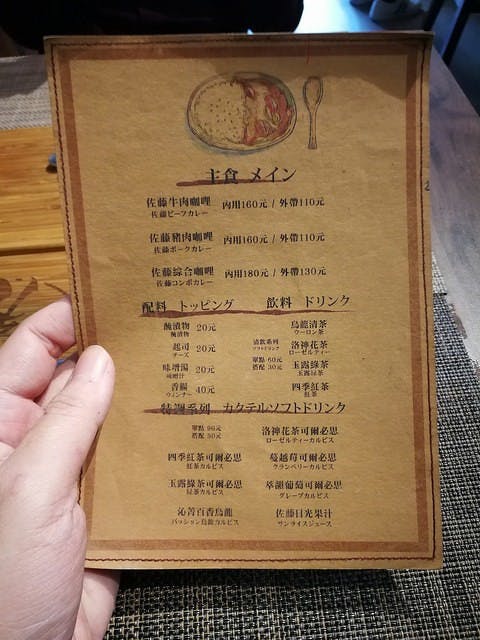 主食 メイン
佐藤牛肉咖哩 內用160元 / 外帶110元
佐藤ビーフカレー
佐藤豬肉咖哩 內用160元 / 外帶110元
佐藤ポークカレー
佐藤綜合咖哩 內用180元 / 外帶130元
佐藤コンボカレー
配料 トッピング
醃漬物 20元
醃漬物
起司 20元
チーズ
味增湯 20元
味噌汁
香腸 40元
ウィンナー
飲料 ドリンク
清飲系列
ソフトドリンク
單點 60元
搭配 30元
烏龍清茶
ウーロン茶
洛神花茶
ローゼルティー
玉露綠茶
玉露绿茶
四季紅茶
紅茶
特調系列 カクテルソフトドリンク
單點 90元
搭配 50元
洛神花茶可爾必思
ローゼルティーカルピス
四季紅茶可爾必思
紅茶カルピス
蔓越莓可爾必思
クランベリーカルピス
玉露綠茶可爾必思
绿茶カルピス
萃釀葡萄可爾必思
グレープカルピス
沁菁百香烏龍
パッション烏龍カルピス
佐藤日光果汁
サンライズジュース